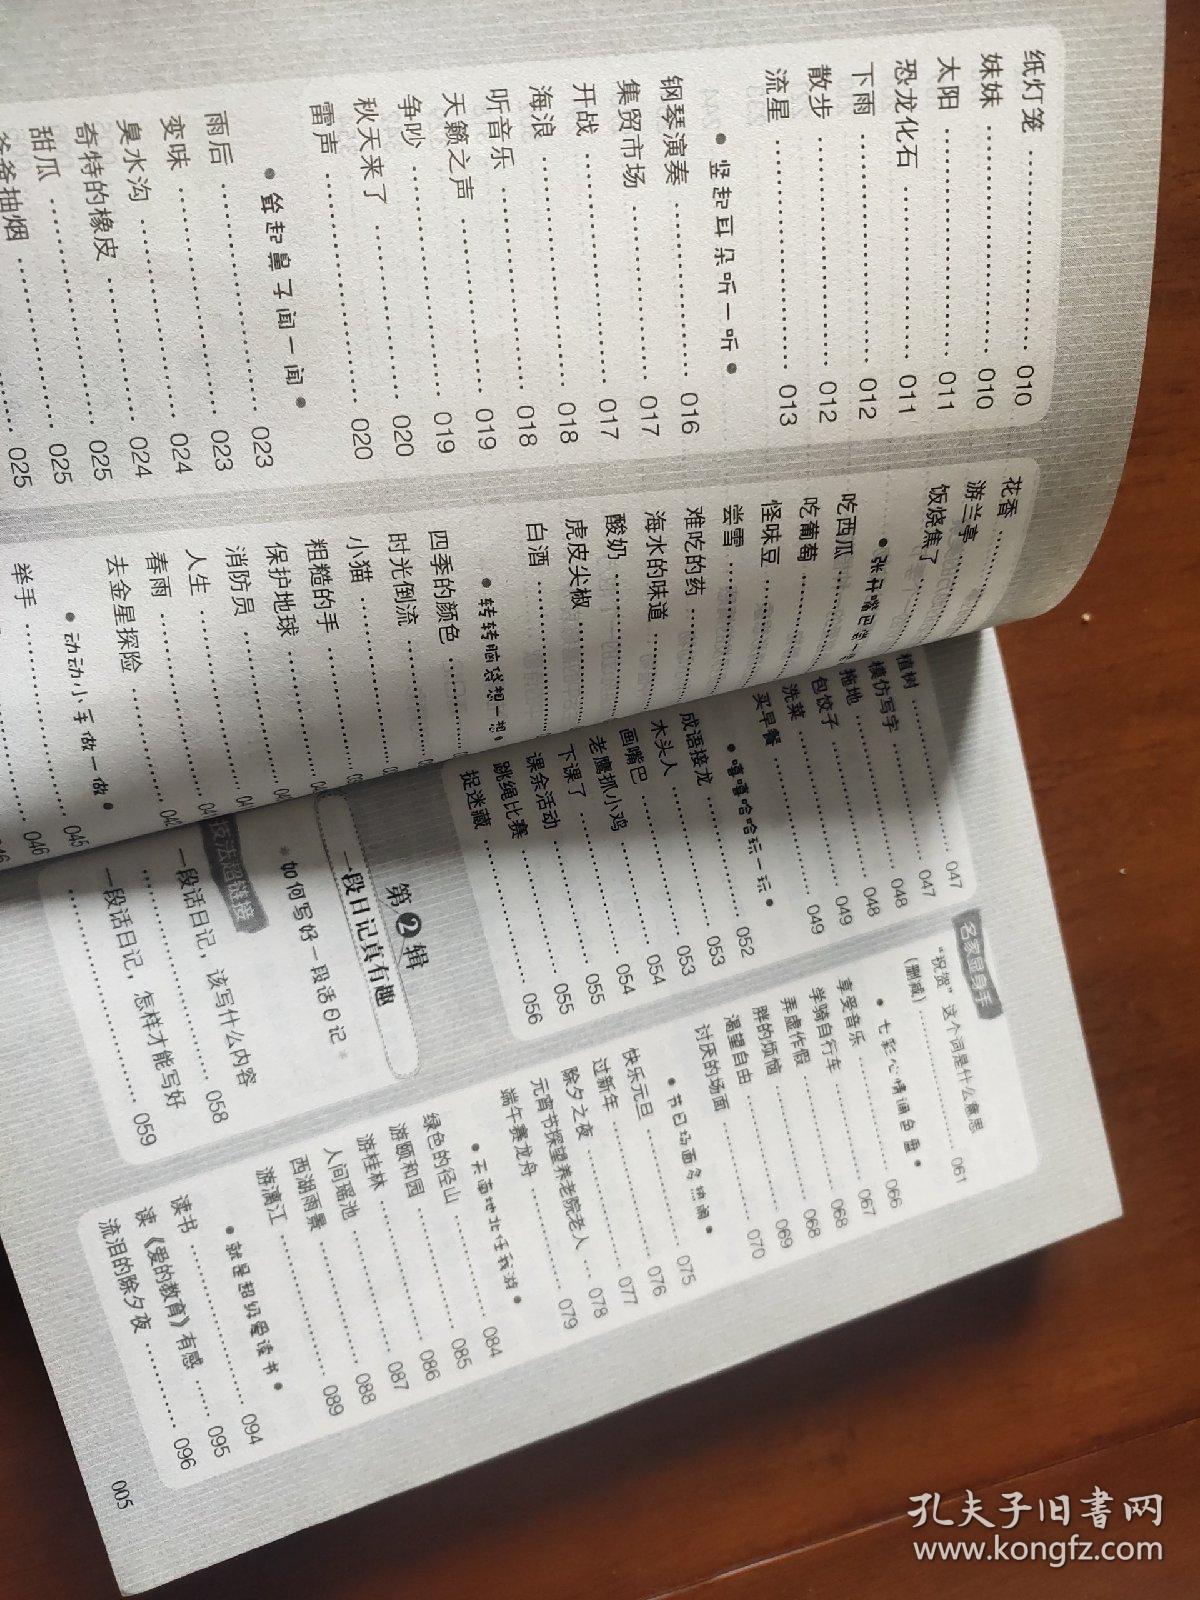 纸灯笼 …… 010
妹妹 …… 010
太阳 …… 011
恐龙化石 …… 011
下雨 …… 012
散步 …… 012
流星 …… 013
● 竖起耳朵听一听 ●
钢琴演奏 …… 016
集贸市场 …… 017
开战 …… 017
海浪 …… 018
听音乐 …… 018
天籁之声 …… 019
争吵 …… 019
秋天来了 …… 020
雷声 …… 020
● 耸起鼻子闻一闻 ●
雨后 …… 023
变味 …… 023
臭水沟 …… 024
奇特的橡皮 …… 024
甜瓜 …… 025
爸爸抽烟 …… 025
025
花香 ……
游兰亭 ……
饭烧焦了 ……
● 张开嘴巴尝一
吃西瓜
吃葡萄
怪味豆
尝雪 ……
难吃的药
海水的味道 ……
酸奶 ……
虎皮尖椒 ……
白酒 ……
● 转转脑袋想一想 ●
四季的颜色 ……
时光倒流 ……
小猫 ……
粗糙的手 ……
保护地球 ……
消防员 ……
人生 ……
春雨 ……
去金星探险 ……
● 动动小手做一做 ●
045
举手 …… 046
植树 …… 047
模仿写字 …… 047
拖地 …… 048
包饺子 …… 048
洗菜 …… 049
买早餐 …… 049
● 嘻嘻哈哈玩一玩 ●
成语接龙 …… 052
木头人 …… 053
画嘴巴 …… 053
老鹰抓小鸡 …… 054
下课了 …… 054
课余活动 …… 055
跳绳比赛 …… 055
捉迷藏 …… 056
第2辑
一段日记真有趣
如何写好一段话日记
技法超链接
一段话日记，该写什么内容
…… 058
一段话日记，怎样才能写好
…… 059
名家显身手
“祝贺”这个词是什么意思
（删减） …… 061
● 七彩心情调色盘 ●
享受音乐 …… 066
学骑自行车 …… 067
弄虚作假 …… 068
胖的烦恼 …… 068
渴望自由 …… 069
讨厌的场面 …… 070
● 节日场面多热闹 ●
快乐元旦 …… 075
过新年 …… 076
除夕之夜 …… 077
元宵节探望养老院老人 … 078
端午赛龙舟 …… 079
● 天南地北任我游 ●
绿色的径山 …… 084
游颐和园 …… 085
游桂林 …… 086
人间瑶池 …… 087
西湖雨景 …… 088
游漓江 …… 089
● 就是超级爱读书 ●
读书 …… 094
读《爱的教育》有感 …… 095
流泪的除夕夜 …… 096
005
孔夫子旧书网
www.kongfz.com